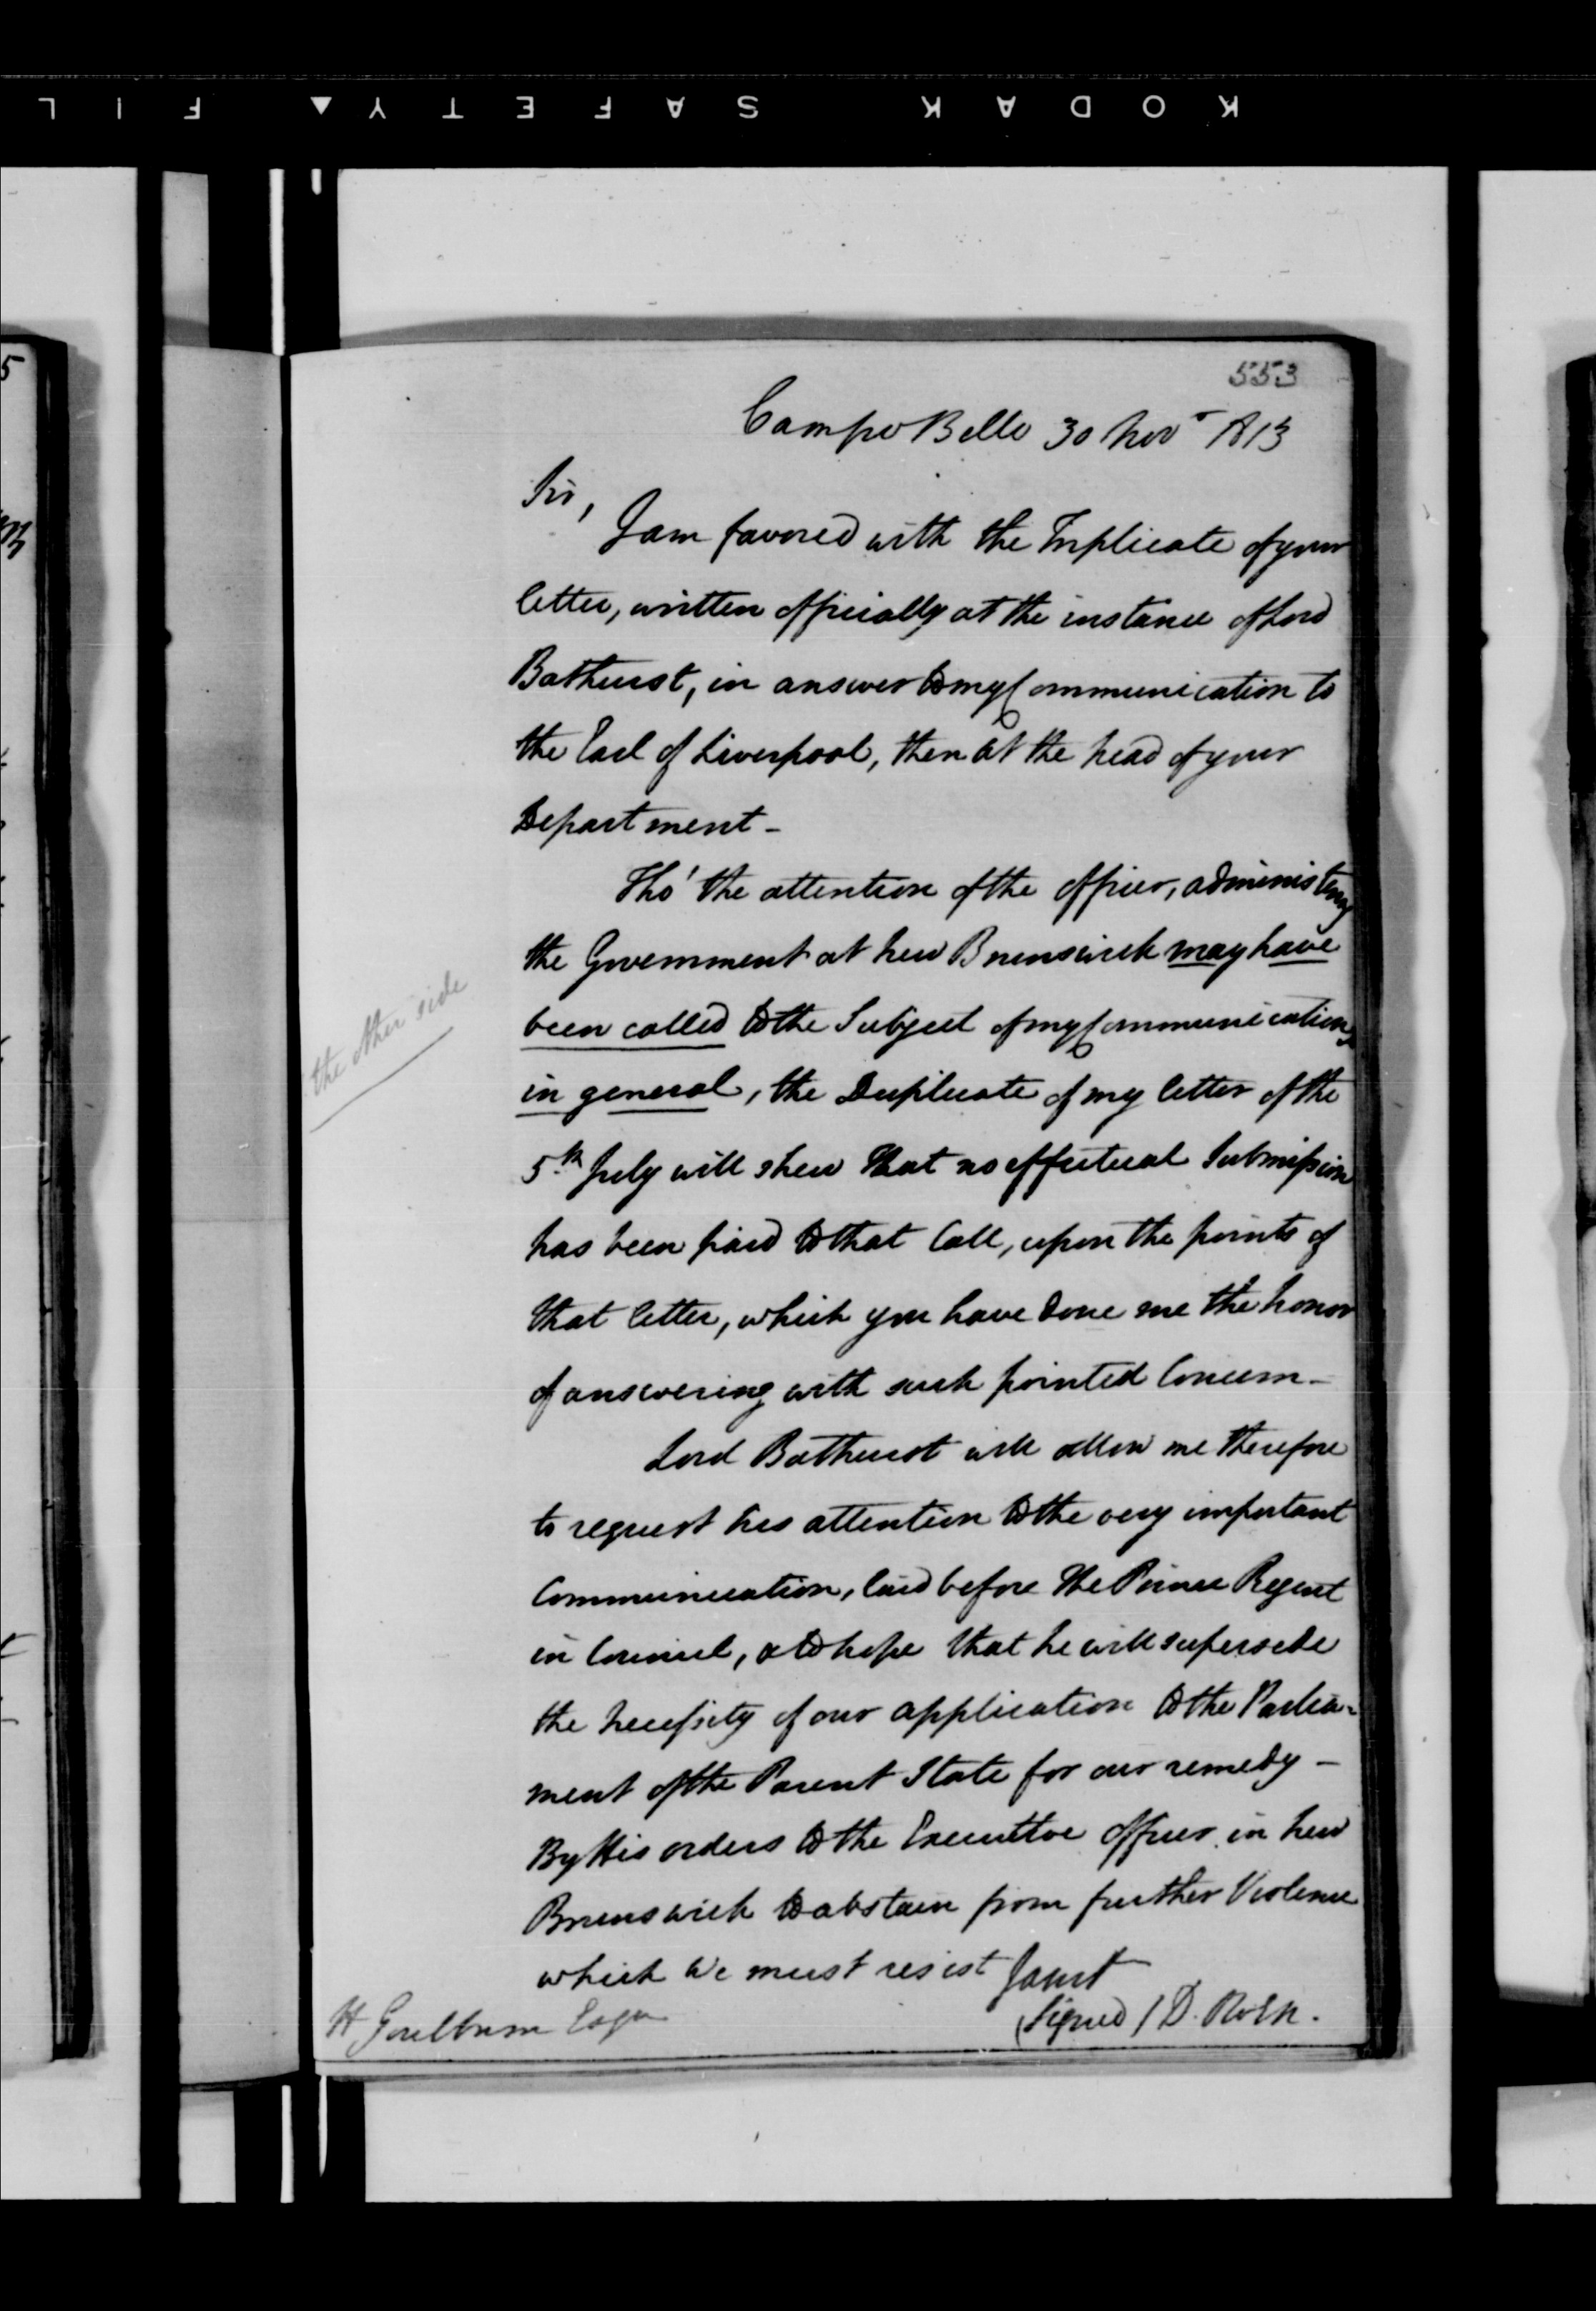 KODAK SAFETY FIL
553
Campo Bello 30 Novr 1813
Sir,
I am favored with the Triplicate of your
letter, written officially at the instance of Lord
Bathurst, in answer to my Communication to
the Earl of Liverpool, then at the head of your
Department -
Tho' the attention of the officer, administering
the Government at New Brunswick may have
been called to the Subject of my Communications
in general, the Duplicate of my letter of the
5th July will shew that no effectual Submission
has been paid to that Call, upon the points of
that letter, which you have done me the honor
of answering with such pointed Concern -
Lord Bathurst will allow me therefore
to request his attention to the very important
Communication, laid before the Prince Regent
in Council, & to hope that he will supersede
the necessity of our application to the Parlia-
ment of the Parent State for our remedy -
By His orders to the Executive officer in New
Brunswick to abstain from further Violence
which We must resist
(Signed) D. Owen.
H Goulburn Esqr
the other side